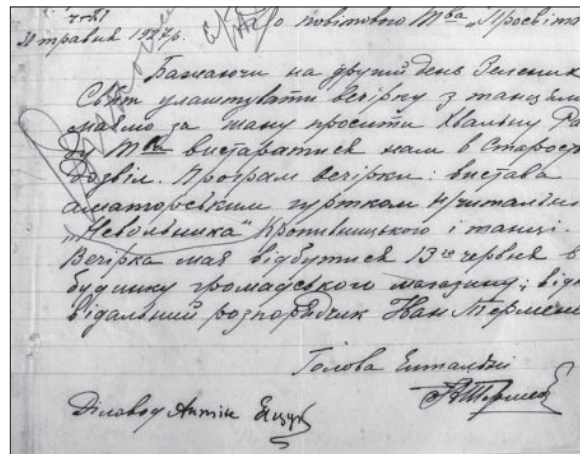 ч. 21
31 травня 1927р. До повітового Тва „Просвіта
Бажаючи на другий день Зелених
Свят улаштувати вечірку з танцями
маємо за шану просити Хвальну Ра
ду Тва вистаратися нам в Старост
дозвіл. Програм вечірки: вистава
аматорським гуртком читальні
„Невольника" Кропивницького і танці.
Вечірка має відбутися 13го червня в
будинку громадського магазину; відп
відальний розпорядчик Іван
Голова читальні
Діловод Антін